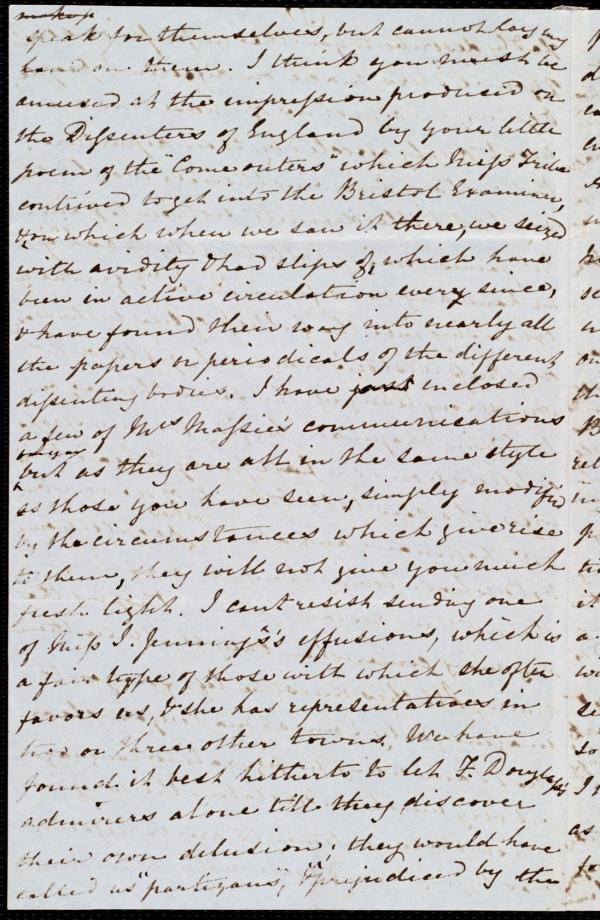 speak for themselves, but cannot lay my
hand on them. I think you must be
amused at the impression produced on
the Dissenters of England by your little
poem of the "Come outers" which Miss
contrived to get into the Bristol Examiner,
& on which when we saw it there, we seized
with avidity & had slips of, which have
been in active circulation every since,
& have found their way into nearly all
the papers or periodicals of the different
dissenting bodies. I have just inclosed
a few of Mrs Massie's communications
but as they are all in the same style
as those you have seen, simply modified
by the circumstances which give rise
to them, they will not give you much
fresh light. I cant resist sending one
of Miss I. Jennings's effusions, which is
a fair type of those with which she often
favors us, & she has representatives in
two or three other towns. We have
found it best hitherto to let F. Douglass's
admirers alone till they discover
their own delusion; they would have
called us "partizans", & "prejudiced by the